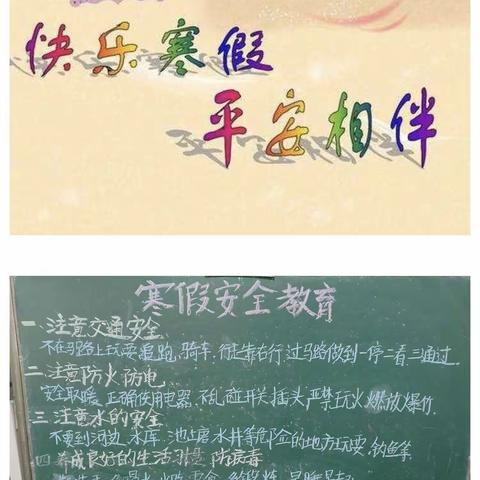 快乐寒假
平安相伴
寒假安全教育
一.注意交通安全
不在马路上玩耍追跑,骑车,行走靠右行,过马路做到一停二看三通过.
二.注意防火防电
安全取暖,正确使用电器,不乱碰开关插头,严禁玩火燃放爆竹.
三.注意水的安全
不要到河边,水库,池塘,水井等危险的地方玩耍,钓鱼等
四.养成良好的生活习惯,防病毒